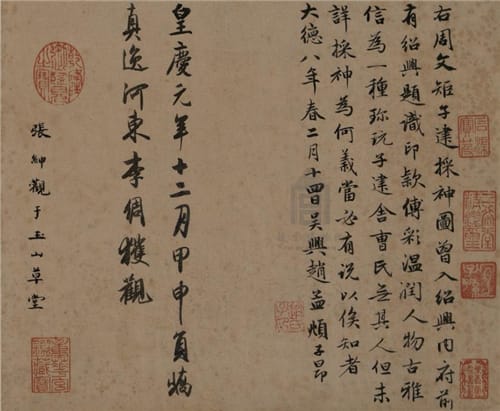 右周文矩子建採神圖曾入紹興内府前
有紹興題識印款傅彩温潤人物古雅
信為一種珎玩子建舍曹氏無其人但未
詳採神為何義當必有說以俟知者
大德八年春二月十四日吳興趙孟頫子昂
皇慶元年十二月甲申貟嶠
真逸河東李倜獲觀
張紳觀于玉山草堂